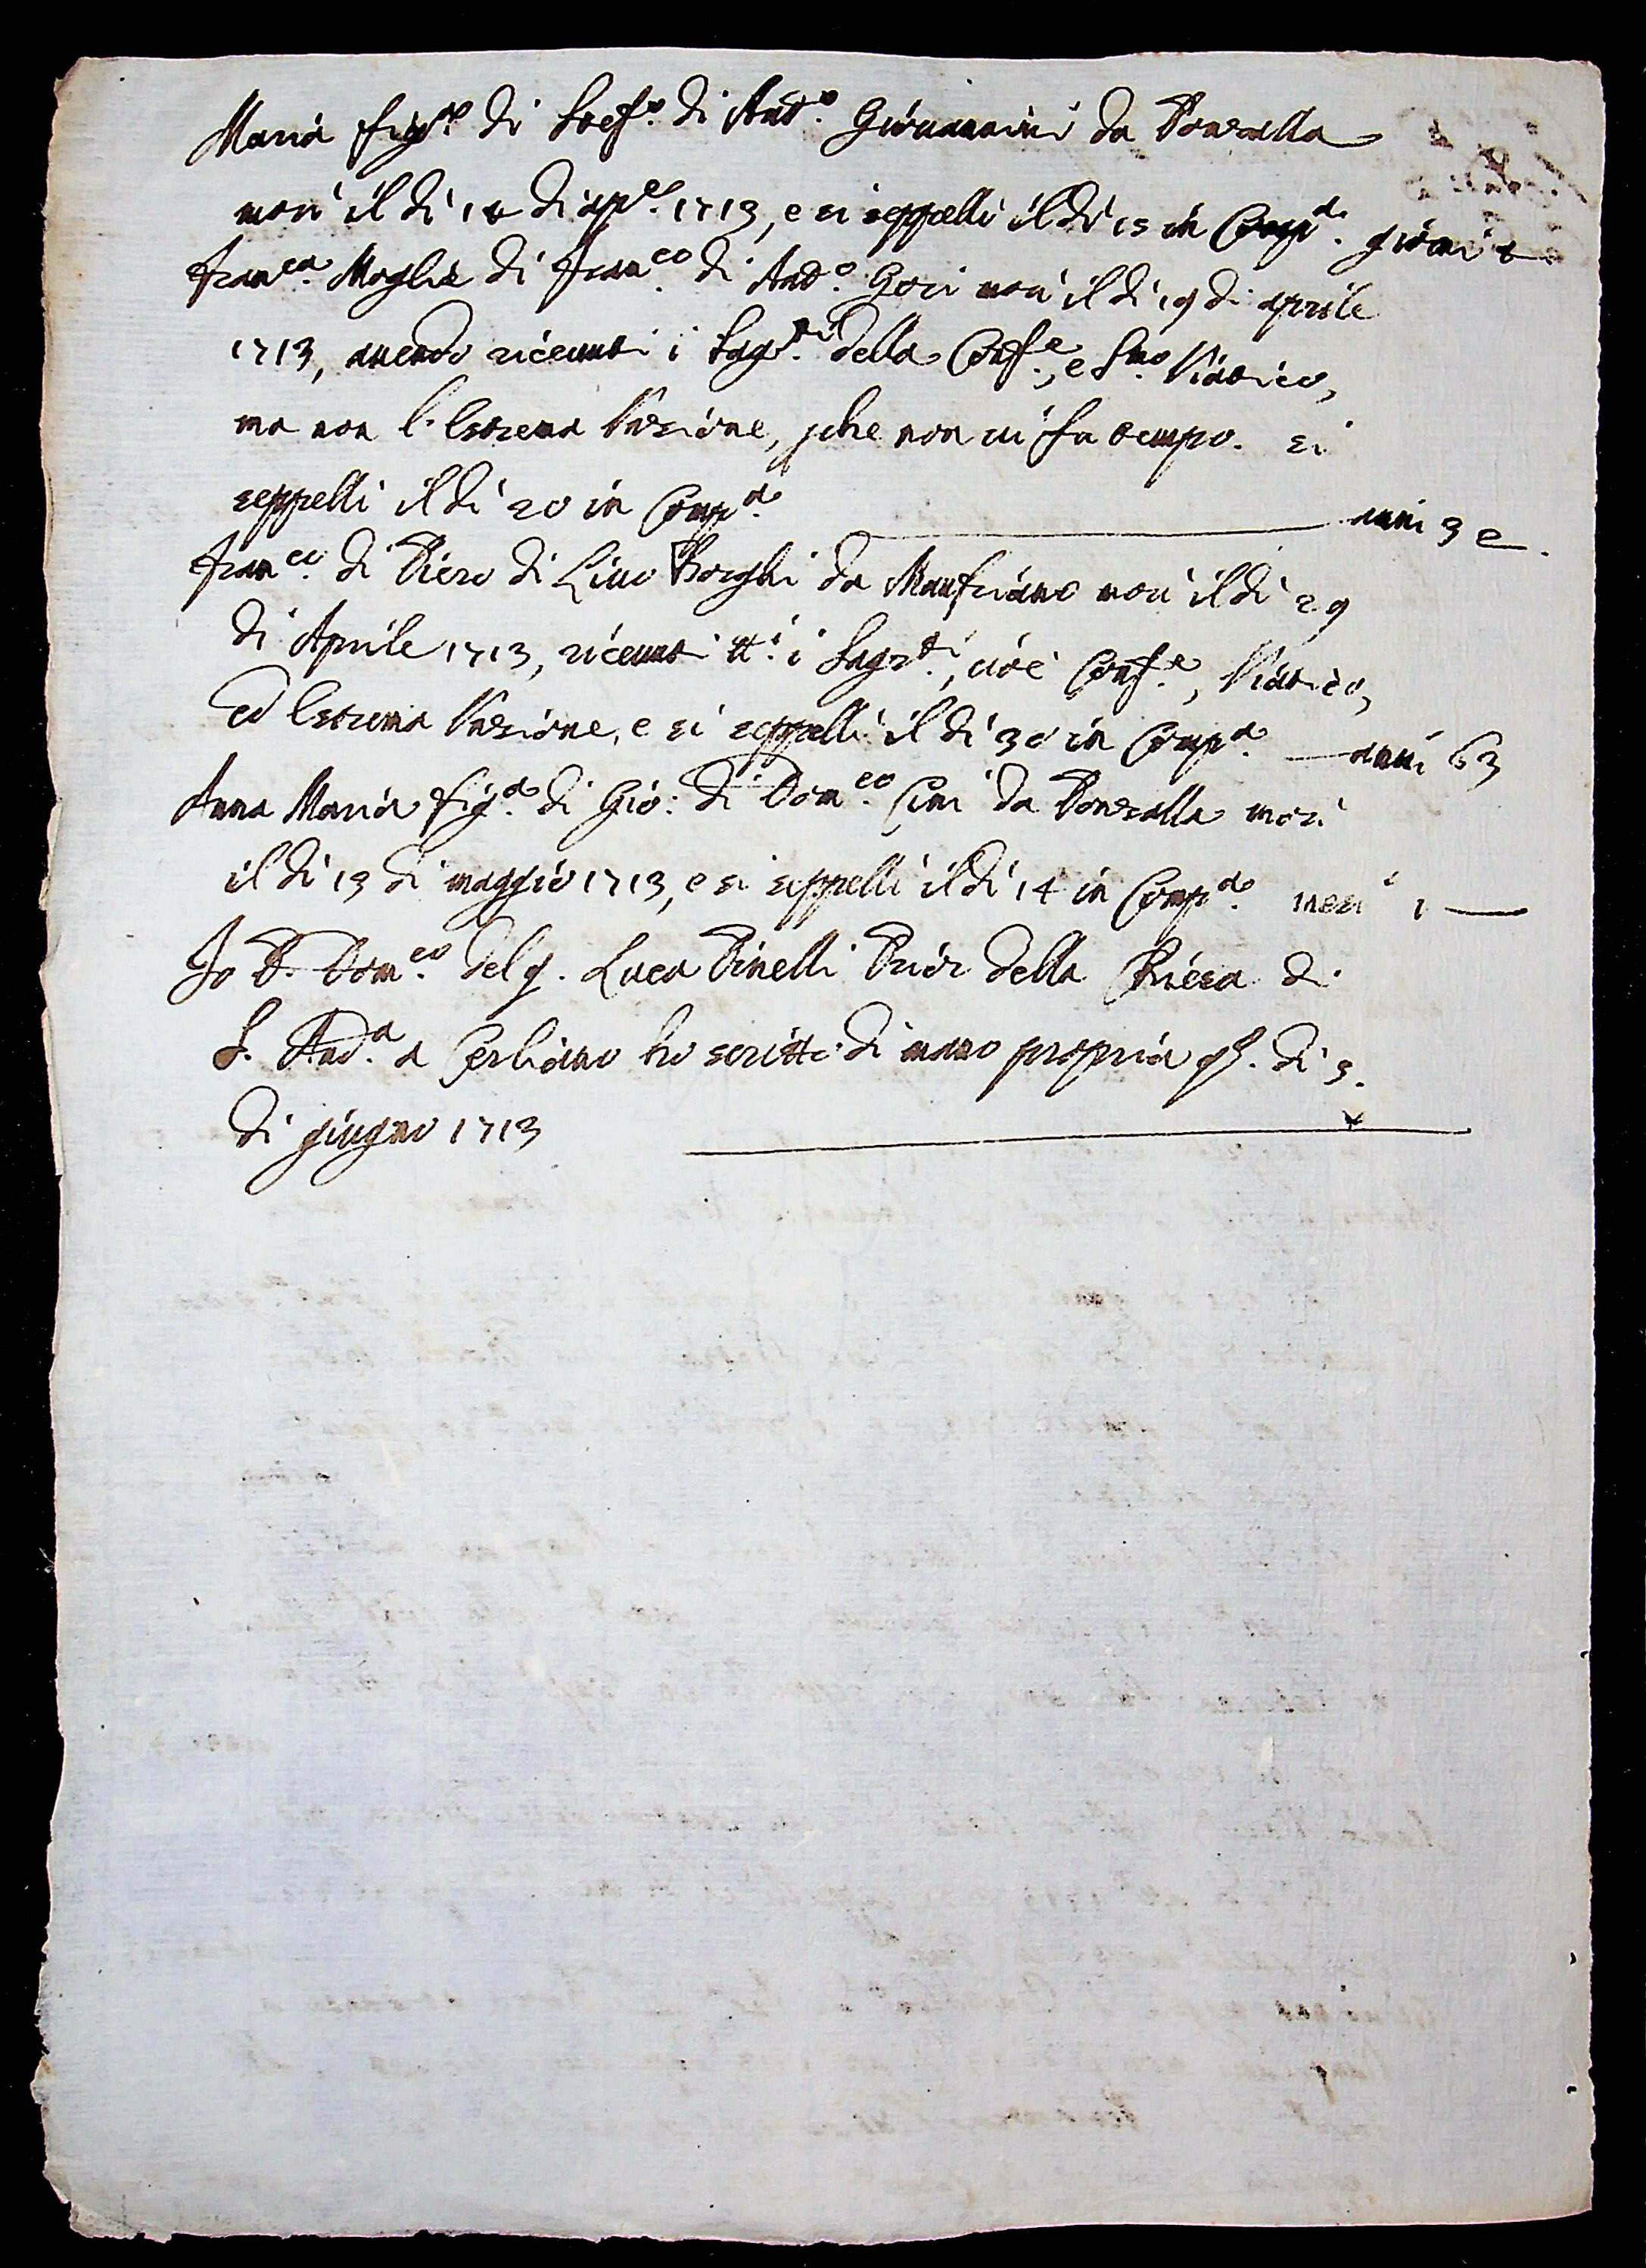 Maria fig.a di Stef.o di Ant.o Giovannini da Ponzalla
morì il dì 14 di ap.e 1713, e si seppellì il dì 15 in Comp.a giorni
Fran.ca Moglie di Fran.co di And.o Gori morì il dì 19 di aprile
1713, avendo ricevuti i Sagr.ti della Conf.e, e S.mo Viatico,
ma non l'Estrema Unzione, pche non vi fu tempo. si
seppellì il dì 20 in Comp.a anni 32.
Fran.co di Piero di Lino Borghi da Manfriano morì il dì 29
di Aprile 1713, ricevuti tt.i i Sagr.ti, cioè Conf.e, Viatico,
ed Estrema Unzione, e si seppellì il dì 30 in Comp.a anni 63
Anna Maria fig.a di Gio: di Dom.co Cini da Ponzalla morì
il dì 13 di maggio 1713, e si seppellì il dì 14 in Comp.a mesi 1
Io P. Dom.co del q. Luca Pinelli Prior della Chiesa di
S. And.a a Cerliano ho scritto di mano propria qs. dì 3.
di giugno 1713